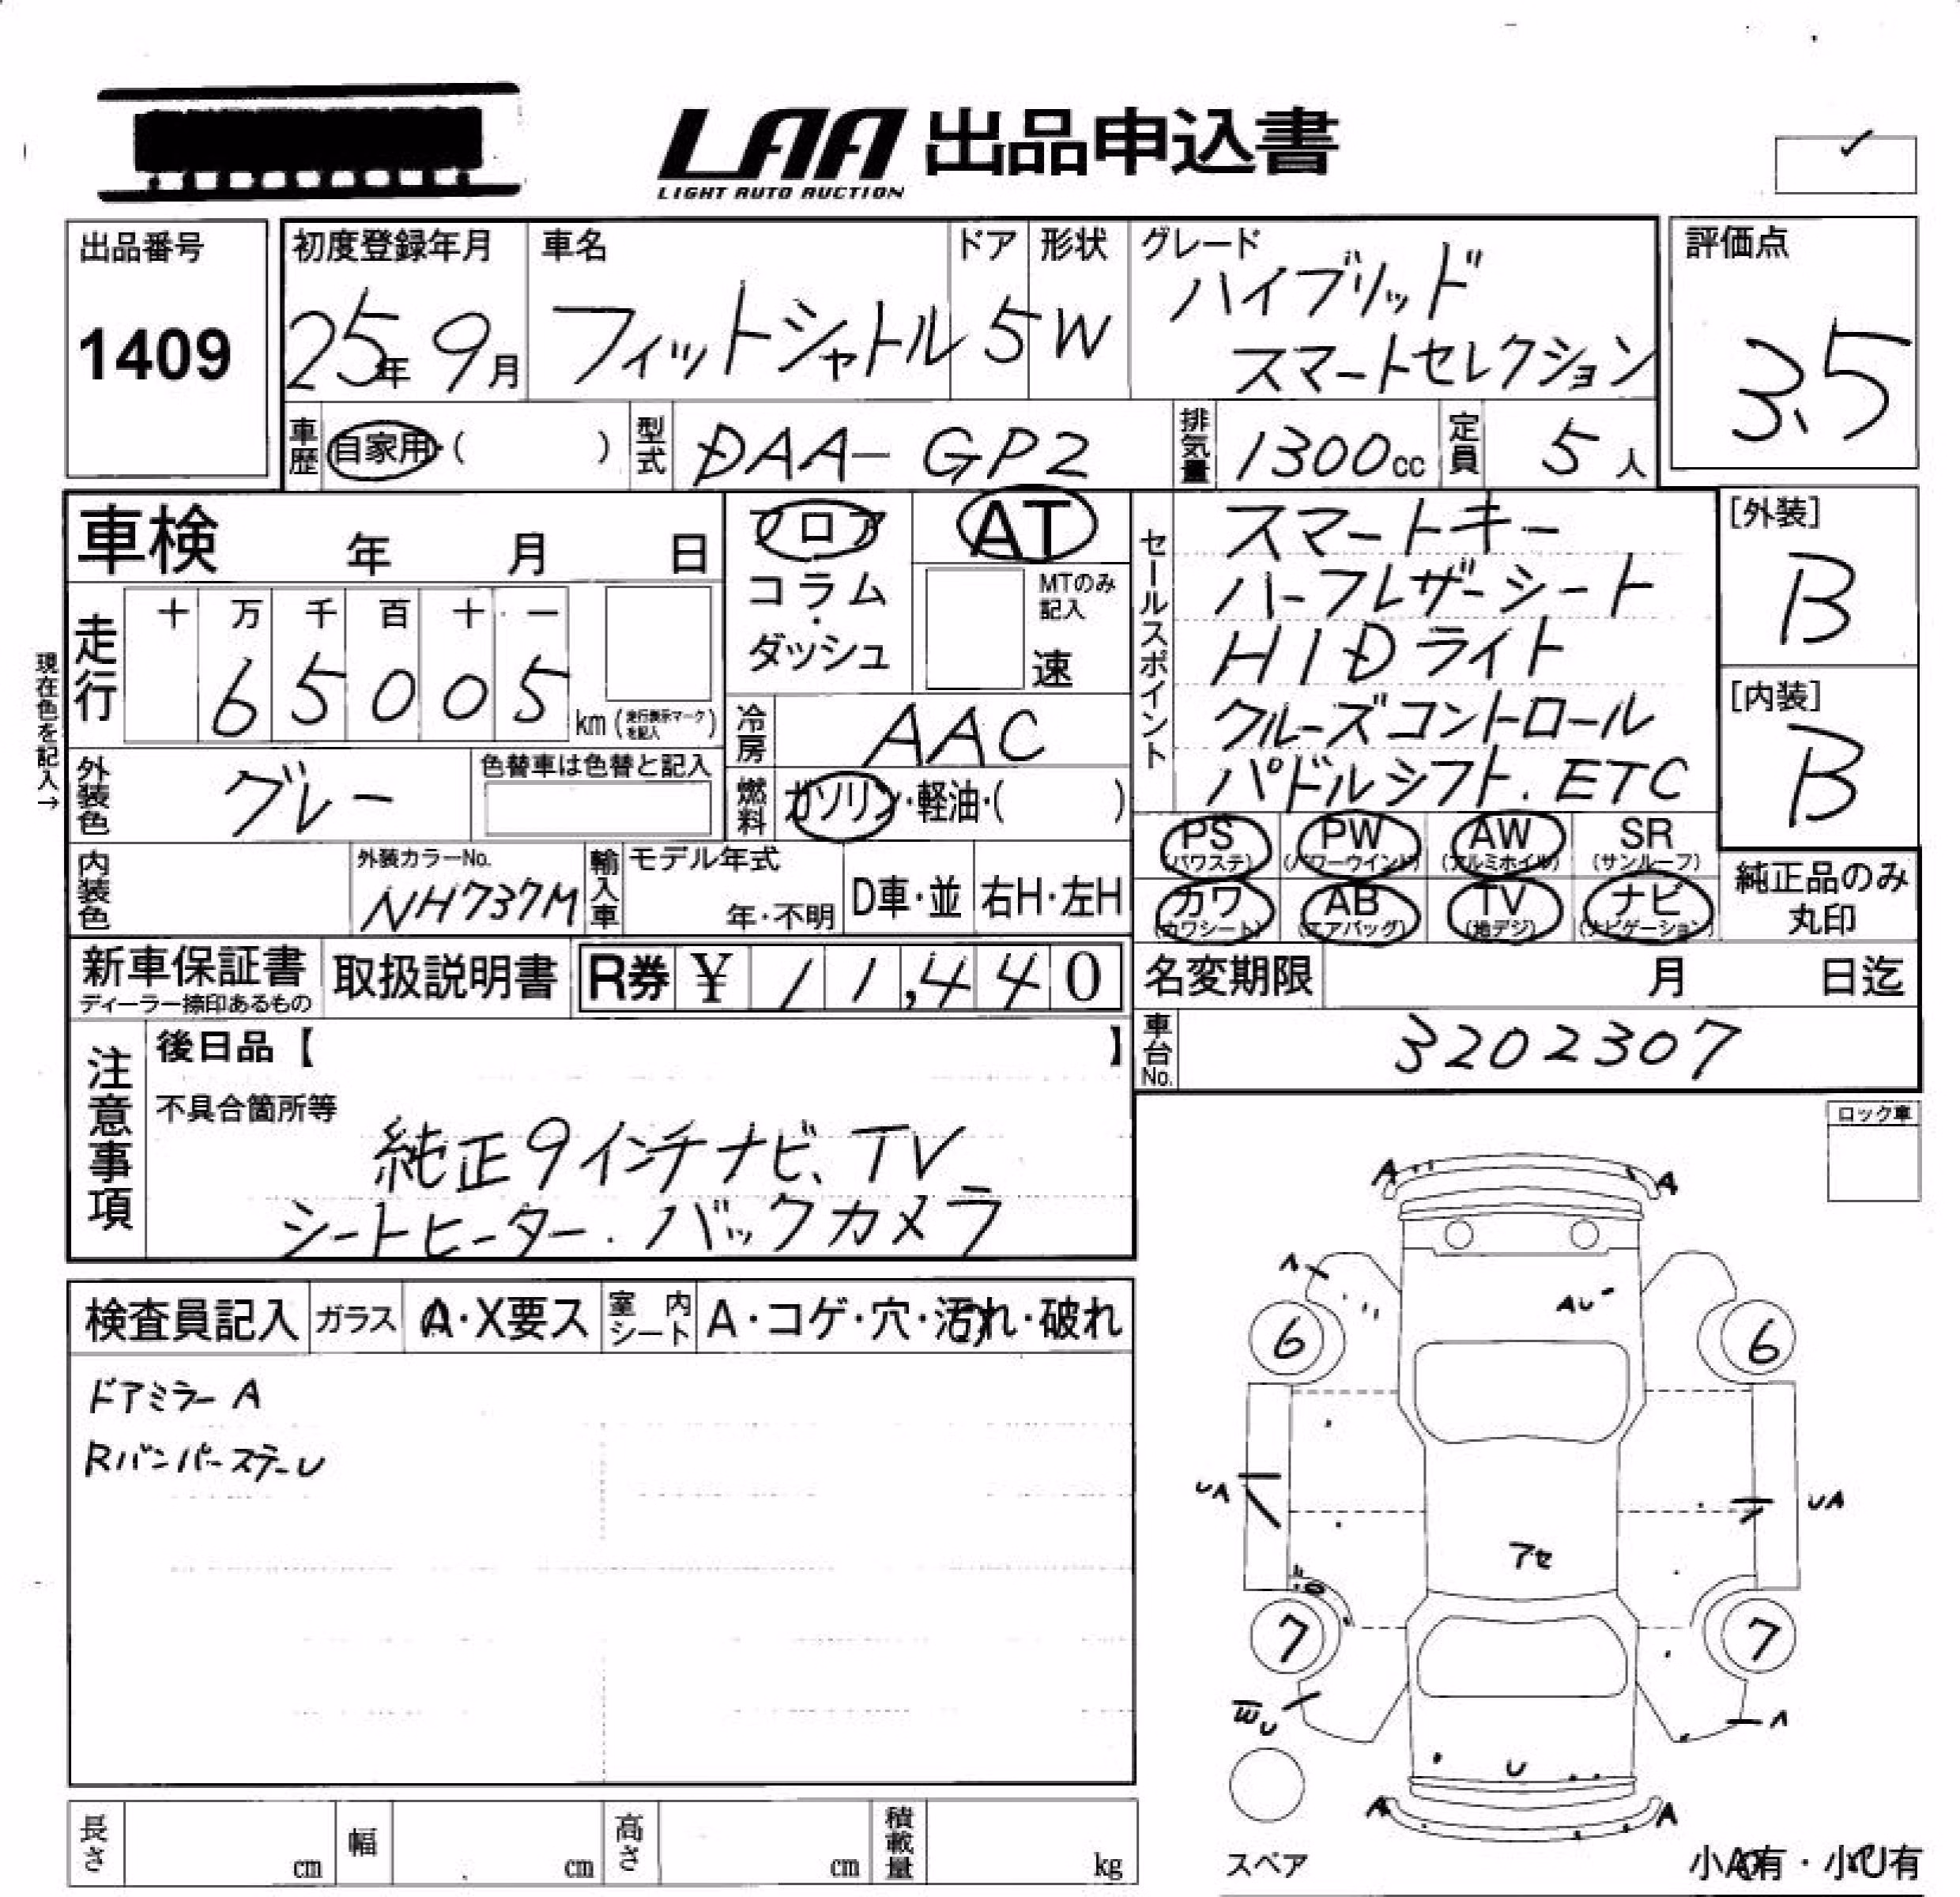 LAA 出品申込書
LIGHT AUTO AUCTION
出品番号
1409
初度登録年月
25年 9月
車名
フィットシャトル
ドア
5
形状
W
グレード
ハイブリッド
スマートセレクション
評価点
3.5
車歴 自家用・( )
型式 DAA-GP2
排気量 1300cc
定員 5人
車検 年 月 日
走行
十 万 千 百 十 一
6 5 0 0 5 km(走行表示マークを記入)
現在色を記入→
外装色 グレー
色替車は色替と記入
内装色
外装カラーNo.
NH737M
フロア
コラム
・
ダッシュ
AT
MTのみ記入
速
冷房 AAC
燃料 ガソリン・軽油・( )
輸入車
モデル年式
年・不明
D車・並
右H・左H
セールスポイント
スマートキー
ハーフレザーシート
HIDライト
クルーズコントロール
パドルシフト.ETC
[外装]
B
[内装]
B
PS (パワステ)
PW (パワーウインド)
AW (アルミホイル)
SR (サンルーフ)
カワ (カワシート)
AB (エアバッグ)
TV (地デジ)
ナビ (ナビゲーション)
純正品のみ
丸印
新車保証書
ディーラー捺印あるもの
取扱説明書
R券 ¥ 11,440
名変期限 月 日迄
車台No. 3202307
注意事項
後日品【 】
不具合箇所等
純正9インチナビ、TV
シートヒーター.バックカメラ
ロック車
検査員記入
ガラス A・X要ス
室内シート A・コゲ・穴・汚れ・破れ
ドアミラー A
RバンパーステーU
A A
A
AU
6 6
UA UA
アセ
7 7
WU
A
U
A A
スペア
小A有・小U有
長さ cm
幅 cm
高さ cm
積載量 kg